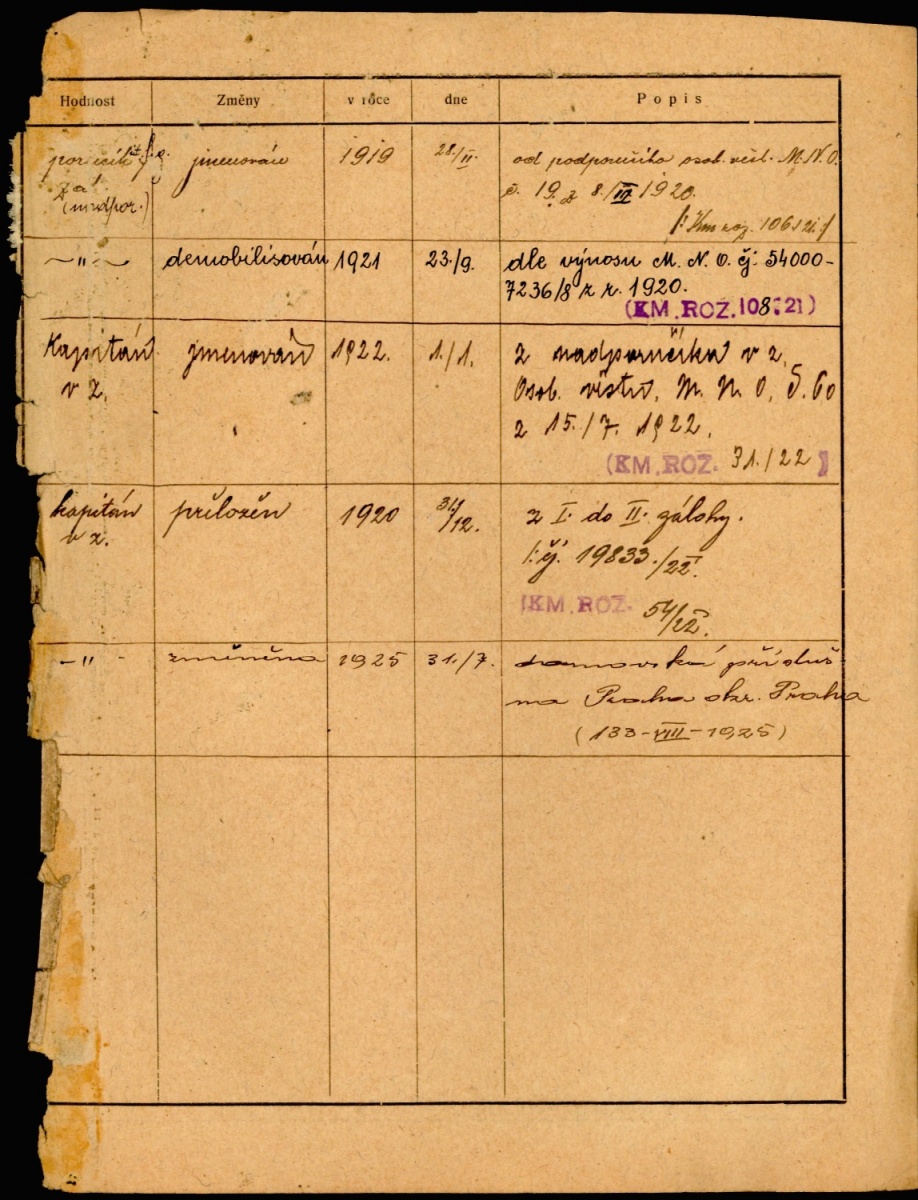 Hodnost Změny v roce dne Popis
poručík jmenován 1919 28./II. od podporučíka osob. věst. M.N.O.
(nadpor.) č. 19. z 8./IV 1920.
/: Km roz. 106
—"— demobilisován 1921 23./9. dle výnosu M. N. O. čj. 54000-
7236/8 z r. 1920.
(KM. ROZ. 108.21)
Kapitán jmenován 1922. 1./1. z nadporučíka v z.
v z. Osob. věstn. M. N. O. č. 60
z 15./7. 1922.
(KM. ROZ. 31./22)
kapitán přeložen 1920 31./12. z I. do II. zálohy.
v z. /: čj. 19833./22.
(KM. ROZ. 54/22.
—"— změněna 1925 31./7. domovská přísluš-
na Praha okr. Praha
(133-VIII-1925)